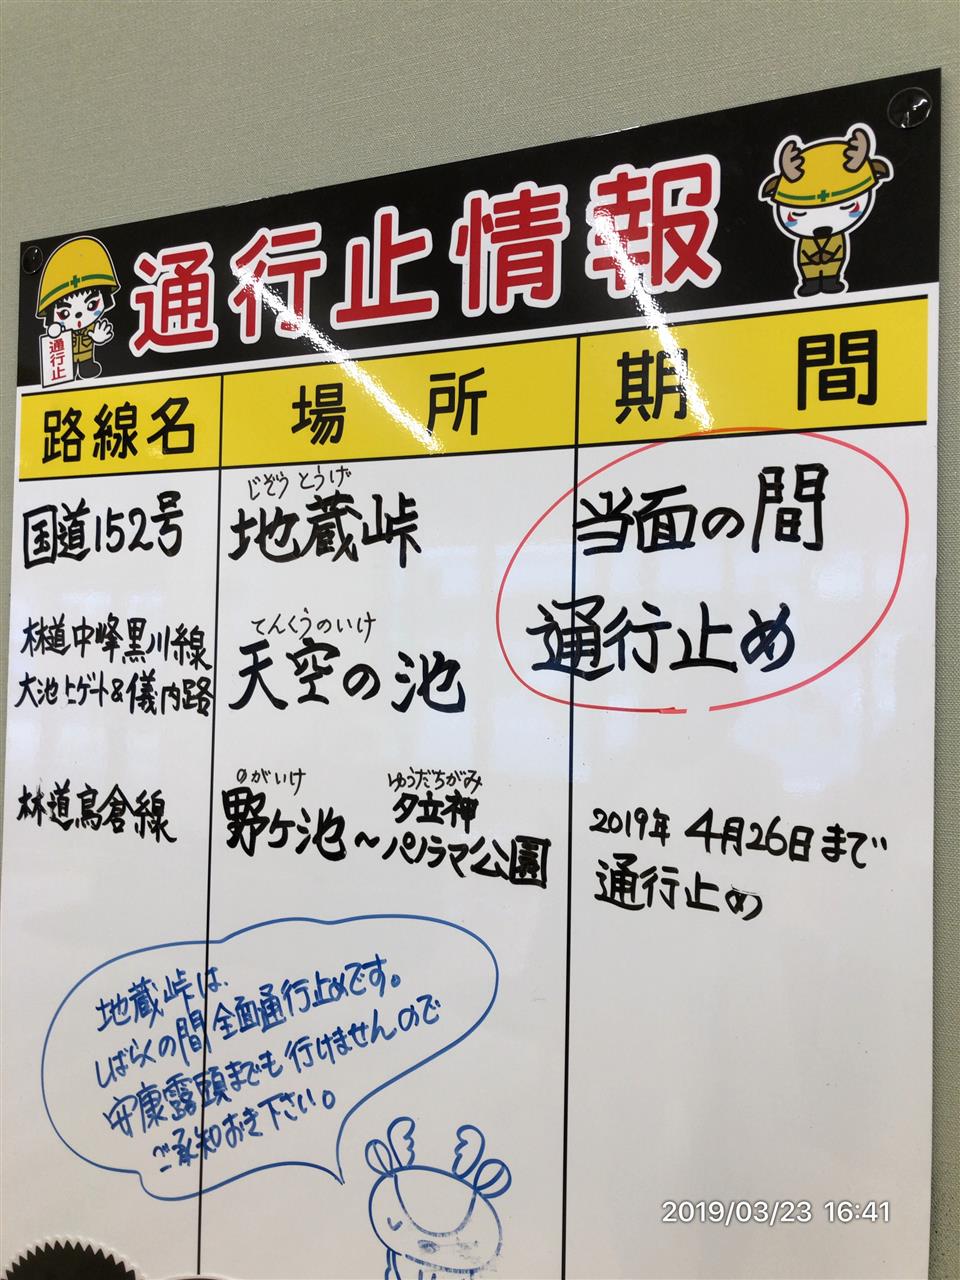 通行止情報
通行止
路線名 場所 期間
じぞうとうげ
国道152号 地蔵峠 当面の間
通行止め
林道中峰黒川線
大池上ゲート&儀内路
てんくうのいけ
天空の池
林道鳥倉線
のがいけ ゆうだちがみ
野ケ池~夕立神
パノラマ公園
2019年 4月26日まで
通行止め
地蔵峠は、
しばらくの間全面通行止めです。
安康露頭までも行けませんので
ご承知おき下さい。
2019/03/23 16:41